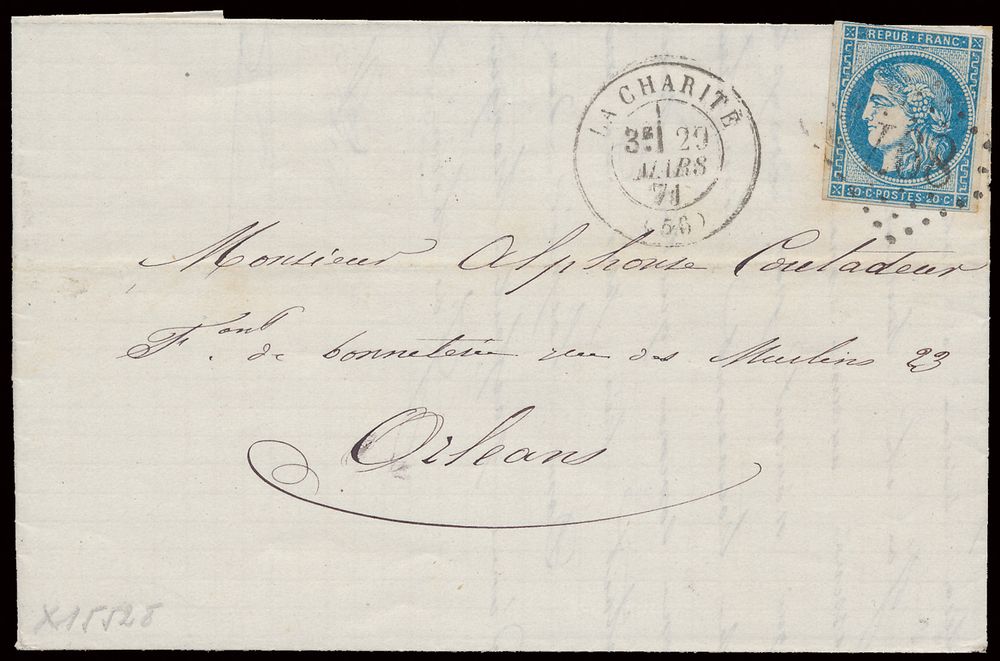 REPUB·FRANC·
20·C·POSTES·20·C·
LA CHARITÉ
3E 29
MARS
71
(56)
Monsieur Alphonse Couladeur
Fant de bonneterie rue des Moulins 23
Orleans
X15528